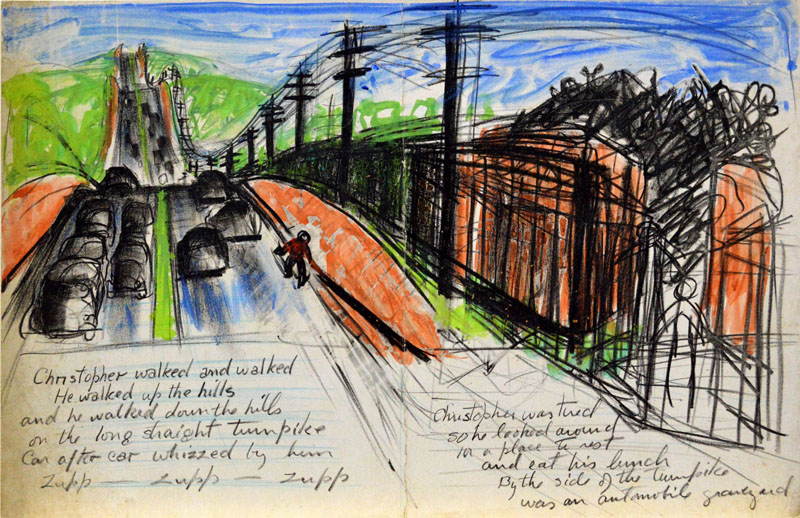 Christopher walked and walked
He walked up the hills
and he walked down the hills
on the long straight turnpike
Car after car whizzed by him
Zupp — Zupp — Zupp
Christopher was tired
so he looked around
for a place to rest
and eat his lunch
By the side of the turnpike
was an automobile graveyard